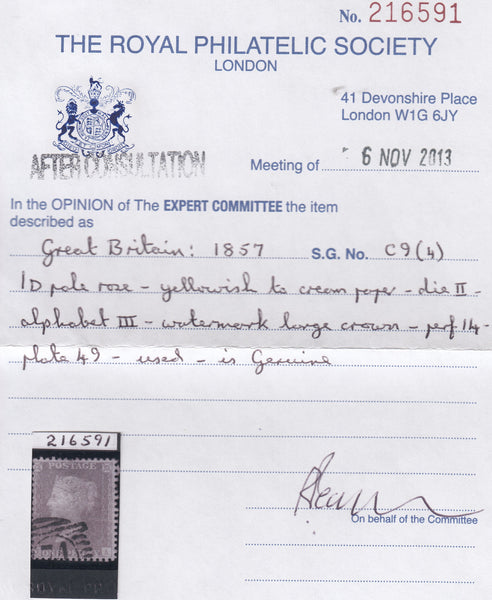 No. 216591
THE ROYAL PHILATELIC SOCIETY
LONDON
41 Devonshire Place
London W1G 6JY
AFTER CONSULTATION
Meeting of 6 NOV 2013
In the OPINION of The EXPERT COMMITTEE the item
described as
Great Britain: 1857 S.G. No. C9(4)
1D pale rose - yellowish to cream paper - die II -
alphabet III - watermark large crown - perf 14 -
plate 49 - used - is Genuine
216591
POSTAGE
On behalf of the Committee